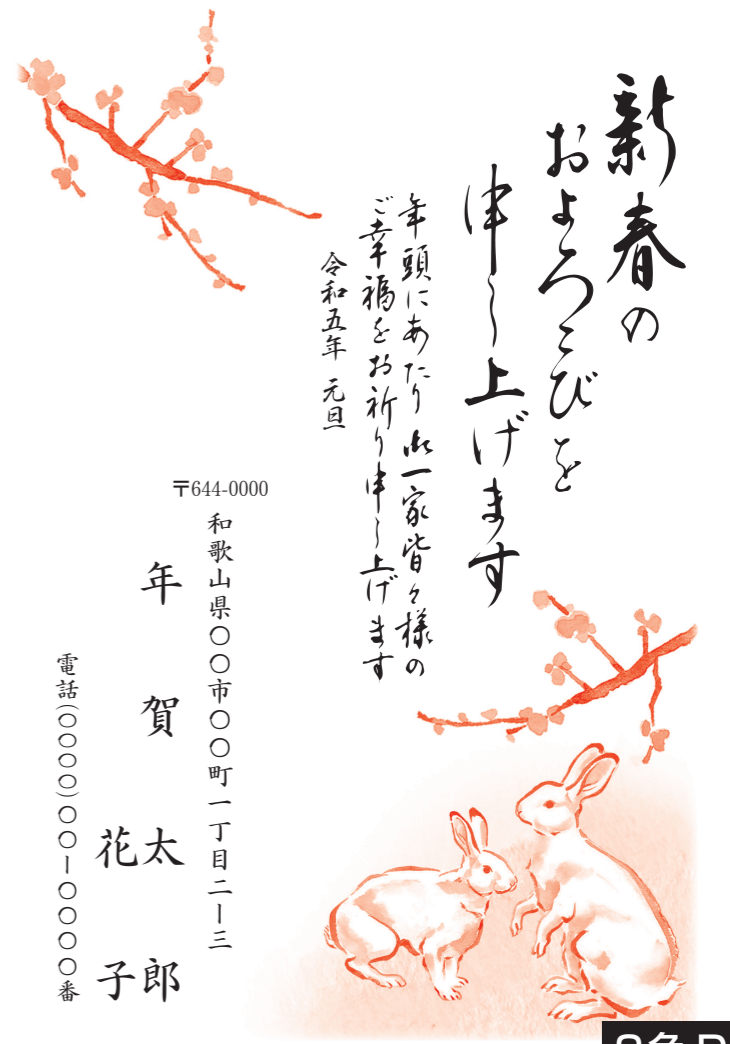 新春の
およろこびを
申し上げます
年頭にあたり御一家皆々様の
ご幸福をお祈り申し上げます
令和五年 元旦
〒644-0000
和歌山県〇〇市〇〇町一丁目二ー三
年賀 太郎
花子
電話(〇〇〇〇)〇〇ー〇〇〇〇番